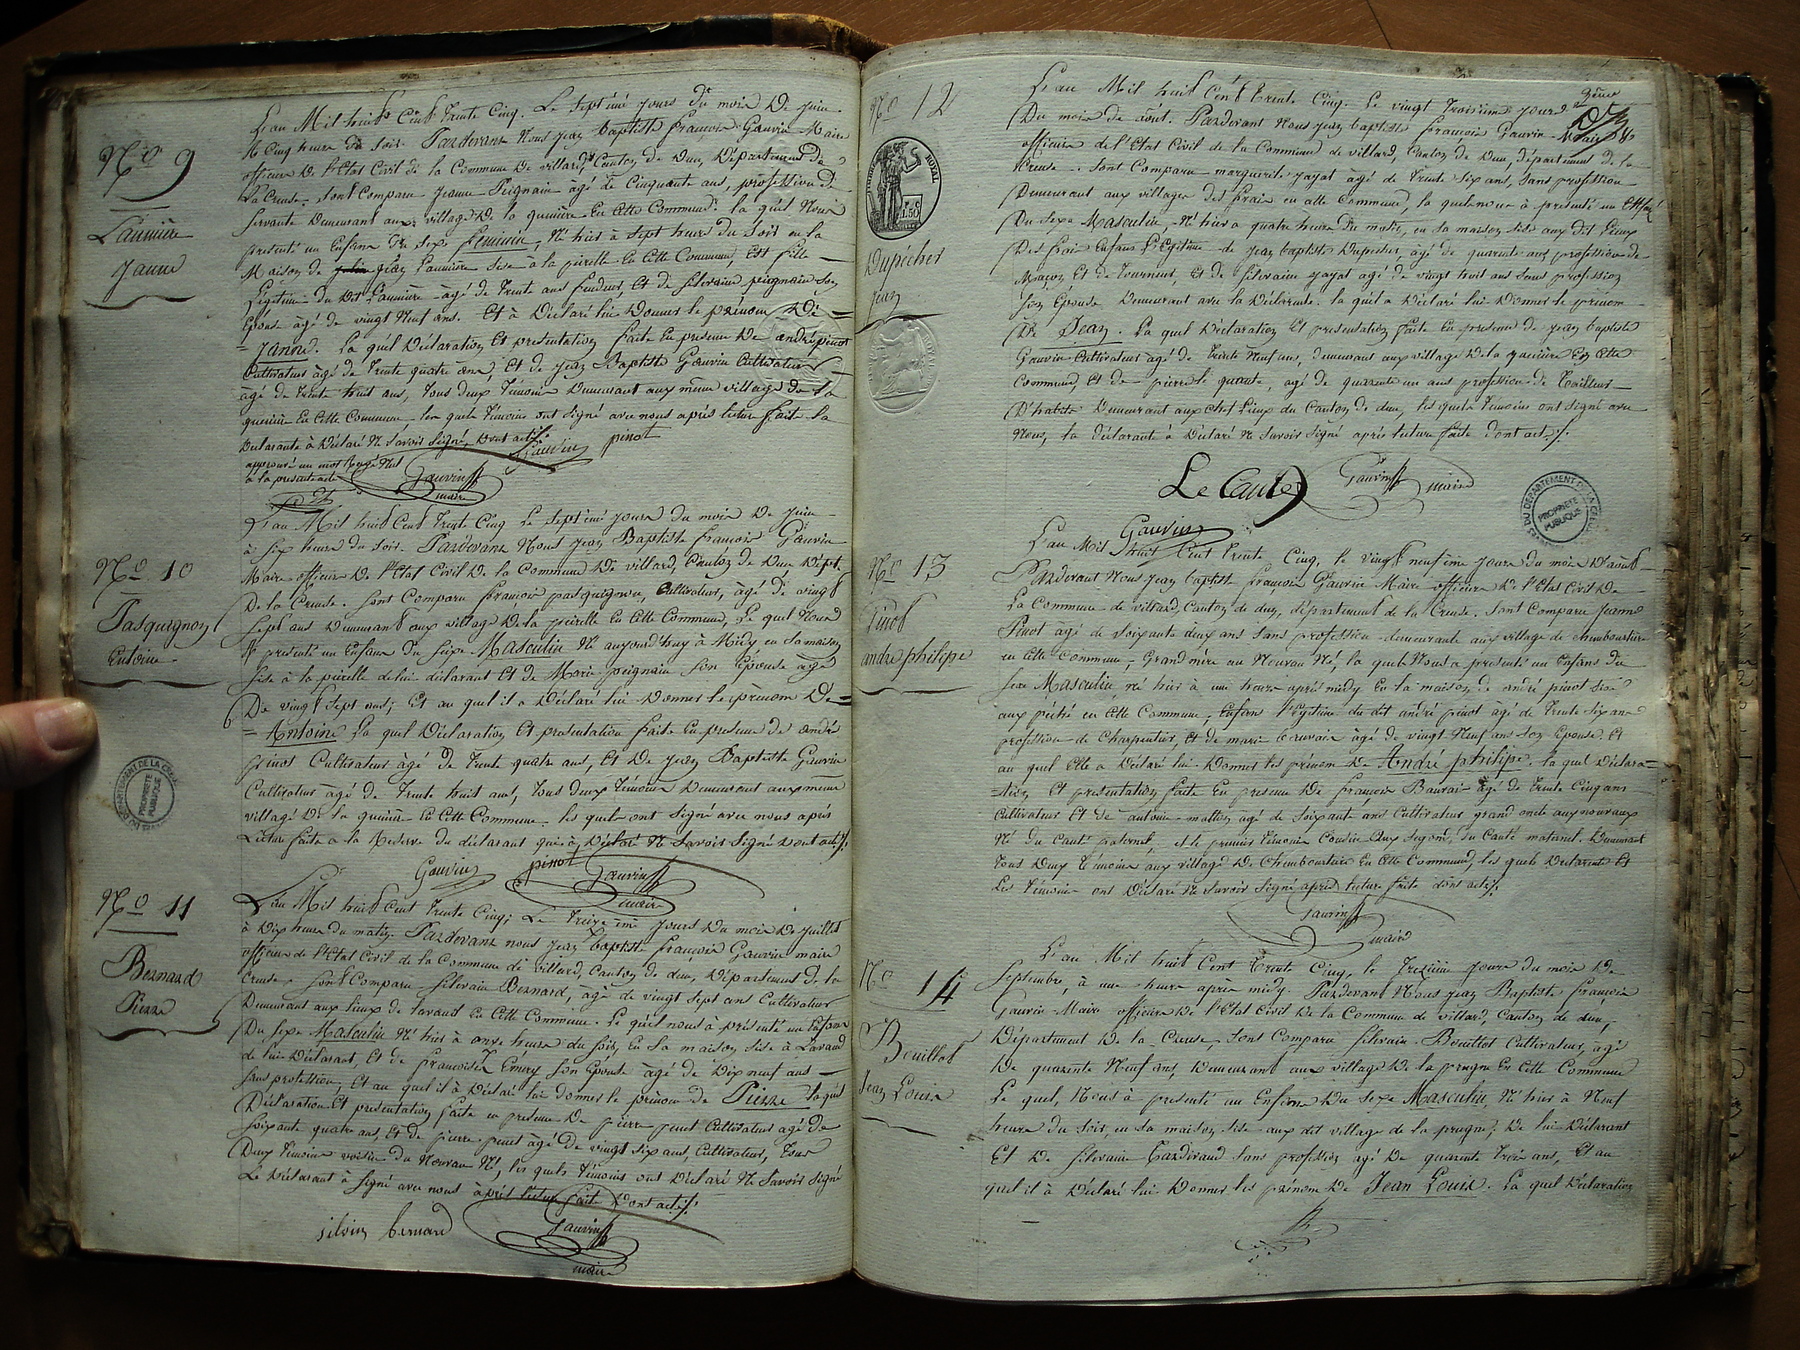 No 9
Laumière
Janne
L'an Mil huit Cent trente Cinq. Le Septième jours du mois De juin
à Cinq heure du Soir. Pardevant Nous jean baptiste françois Gauvin Maire
officier De l'Etat Civil de la Commune de villard, Canton de Dun, Département de
La Creuse. Sont Comparu Jeanne Peignain agé de Cinquante ans, profession de
Servante Demeurant aux village De la quinière En Cette Commune. la quel Nous
présenté un Enfans Du Sexe féminin, Né hier à Sept heure du Soir en la
Maison de jean Laumière Sise à la pirelle En Cette Commune, Est fille
Légitime du Dit Laumière agé de Trente ans fendeur, Et de Silvaine peignain Son
Epouse agé de vingt Neuf ans. Et à Déclaré lui Donner le prénom De =
= Janne. la quel Déclaration Et présentation faite En présence De andré pinot
Cultivateur agé de Trente quatre ans, Et de jean Baptiste Gauvin Cultivateur
agé de Trente huit ans, Tous deux Témoin Demeurant aux même village de la
quinière En Cette Commune, les quels Témoins ont Signé avec nous après lecture faite la
Déclarante à Déclaré Ne Savoir Signé, Dont acte
approuvé un mot Rayé Nul
à la présente acte
Gauvin pinot
Gauvin
maire
No 10
Pasquignon
Entoine
L'an Mil huit Cent Trente Cinq Le Septième jours du mois De juin
à Six heure du Soir. Pardevant Nous jean Baptiste françois Gauvin
Maire officier De l'Etat Civil De la Commune De villard, Canton de Dun Dépt.
De la Creuse. Sont Comparu françois pasquignon, Cultivateur, agé De vingt
Sept ans Demeurant aux village De la pirelle En Cette Commune, Le quel Nous
présenté un Enfans du Sexe Masculin Né aujourd'huy à Midy en Sa maison
Sise à la pirelle de lui déclarant Et de Marie peignain Son Epouse agé
De vingt Sept ans; Et au quel il a Déclaré lui Donner le prénom De =
= Antoine la quel Déclaration Et présentation faite En présence de andré
pinot Cultivateur agé de Trente quatre ans, Et De jean Baptiste Gauvin
Cultivateur agé de Trente huit ans, Tous deux Témoins Demeurant aux meme
village De la quinière En Cette Commune. les quels ont Signé avec nous après
Lecture faite a la Réserve du déclarant qui à Déclaré Ne Savoir Signé Dont acte
Gauvin pinot Gauvin
maire
No 11
Bernard
Pierre
L'an Mil huit Cent Trente Cinq; Le Treizième jours Du mois De juillet
à Dix heure du matin. Pardevant nous jean baptiste françois Gauvin maire
officier de l'Etat Civil de la Commune de villard, Canton de dun, Département de la
Creuse, Sont Comparu Silvain Bernard, agé de vingt Sept ans Cultivateur
Demeurant aux Lieux de Lavaud En Cette Commune. Le quel nous à présenté un Enfans
Du Sexe Masculin Né hier à onze heure du Soir, En Sa maison Sise à Lavaud
de lui Déclarant, Et de françoise Emery Son Epouse agé de Dix neuf ans
Sans profession, Et au quel il à Déclaré lui donner le prénom de Pierre la quel
Déclaration Et présentation faite en présence De pierre Cultivateur agé de
Soixante quatre ans, Et de pierre agé de vingt Six ans Cultivateur, Tous
Deux Témoins voisin du Nouveau Né, les quels Témoins ont Déclaré Ne Savoir Signé
Le Déclarant à Signé avec nous après lecture fait Dont acte
Silvin bernard Gauvin
maire
DÉPARTEMENT DE LA CREUSE
PROPRIÉTÉ
PUBLIQUE
No 12
ROYAL
1.50
Dupécher
Jean
L'an Mil huit Cent Trente Cinq. Le vingt Troisième jour
Du mois de août. Pardevant Nous jean baptiste françois Gauvin Maire
officier de l'Etat Civil de la Commune de villard, Canton de Dun, département de la
Creuse. Sont Comparu marguerite jayat agé de Trente Six ans, Sans profession
Demeurant aux village en cette Commune, la quel nous à présenté un Enfans
Du Sexe Masculin, Né hier a quatre heure Du matin, en Sa maison Sise aux dit Lieux
Enfans Légitime de jean baptiste Dupécher, agé de quarante ans profession de
Maçon Et de Tourneur, Et de Silvaine jayat agé de vingt huit ans Sans profession
Son Epouse Demeurant avec la Déclarante. la quel a Déclaré lui Donner le prénom
De Jean. La quel Déclaration Et présentation faite En présence de jean baptiste
Gauvin Cultivateur agé de Trente Neuf ans, demeurant aux village De la quinière En Cette
Commune, Et de pierre le quante, agé de quarante un ans profession de Tailleur
D'habits Demeurant aux Chef Lieux du Canton de dun, les quels Témoins ont Signé avec
Nous, la déclarante à Déclaré Ne Savoir Signé après lecture faite dont acte
Le Cante Gauvin maire
Gauvin
DU DÉPARTEMENT DE LA CREUSE
PROPRIÉTÉ
PUBLIQUE
No 13
Pinot
andre philipe
L'an Mil huit Cent Trente Cinq, le vingt neufième jours du mois D'août
Pardevant Nous jean baptiste françois Gauvin Maire officier De l'Etat Civil De
La Commune de villard Canton de dun, département de la Creuse. Sont Comparu jeanne
Pinot agé de Soixante deux ans Sans profession demeurante aux village de
en Cette Commune, Grand mère au Nouveau Né, la quel Nous a présenté un Enfans du
Sexe Masculin né hier à une heure après midy En la maison de andré pinot Sise
aux en Cette Commune, Enfans légitime du dit andré pinot agé de Trente Six ans
profession de Charpentier, Et de marie agé de vingt Neuf ans Son Epouse. Et
au quel Elle a Déclaré lui Donner les prénom De André philipe. la quel Déclara=
=tion Et présentation faite En présence De françois agé de Trente Cinq ans
Cultivateur Et de antoine agé de Soixante ans Cultivateur grand oncle aux nouveaux
Né du Coté paternel, et le premier Témoin Cousin aux Segond du Coté maternel. Demeurant
Tous Deux Témoins aux village De en Cette Commune, les quels Déclarante Et
Les Témoins ont Déclaré Ne Savoir Signé après lecture faite dont acte
Gauvin
maire
No 14
Bouillot
Jean Louis
L'an Mil huit Cent Trente Cinq, le Treizième jours du mois De
Septembre, à une heure après midy. Pardevant Nous jean Baptiste françois
Gauvin Maire officier De l'Etat Civil De la Commune de villard, Canton de dun,
Département De la Creuse, Sont Comparu Silvain Bouillot Cultivateur, agé
De quarante Neuf ans, Demeurant aux village De la prugne En Cette Commune
Le quel, Nous à présenté un Enfans Du Sexe Masculin, Né hier à Neuf
heure du Soir, en Sa maison Sise aux dit village de la prugne, De lui Déclarant
Et De Silvaine Tardivaud Sans profession agé De quarante Trois ans, Et au
quel il à Déclaré lui Donner les prénom De Jean Louis. La quel Déclaration